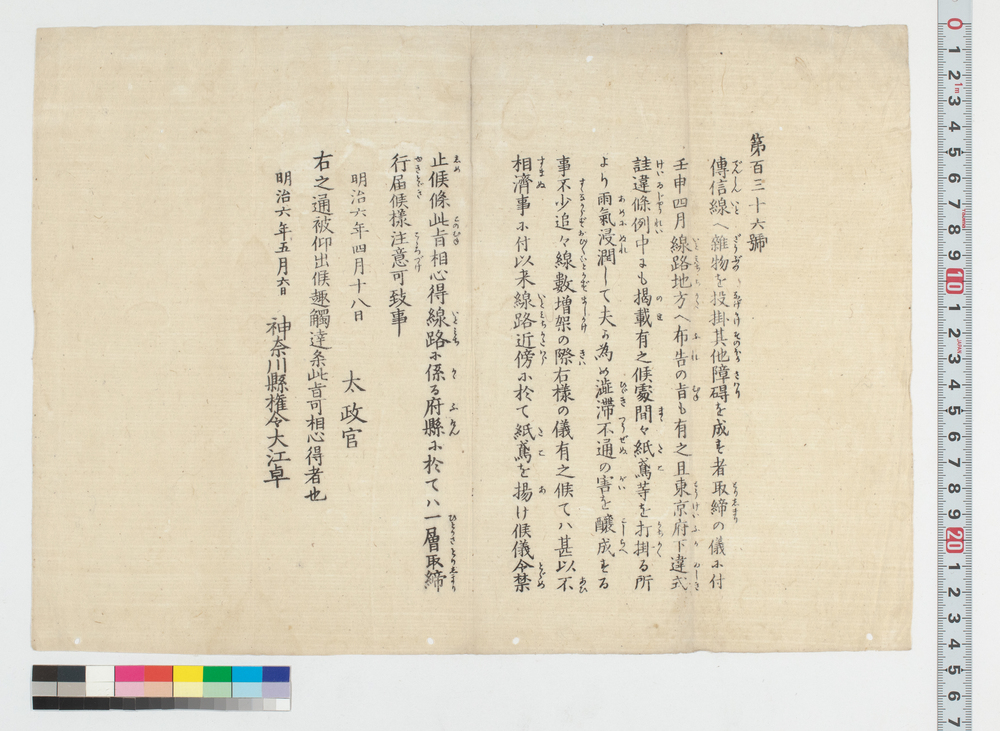 第百三十六號
傳信線ヘ雜物を投掛其他障碍を成を者取締の儀ニ付
壬申四月線路地方ヘ布告の旨も有之且東京府下違式
詿違條例中にも揭載有之候處間々紙鳶等を打掛る所
より雨氣浸潤して夫か為め澁滯不通の害を釀成をる
事不少追々線數增架の際右樣の儀有之候てハ甚以不
相濟事ニ付以来線路近傍ニ於て紙鳶を揚け候儀令禁
止候條此旨相心得線路ニ係る府縣ニ於てハ一層取締
行届候樣注意可致事
明治六年四月十八日
太政官
右之通被仰出候趣觸達条此旨可相心得者也
明治六年五月六日
神奈川縣権令大江卓